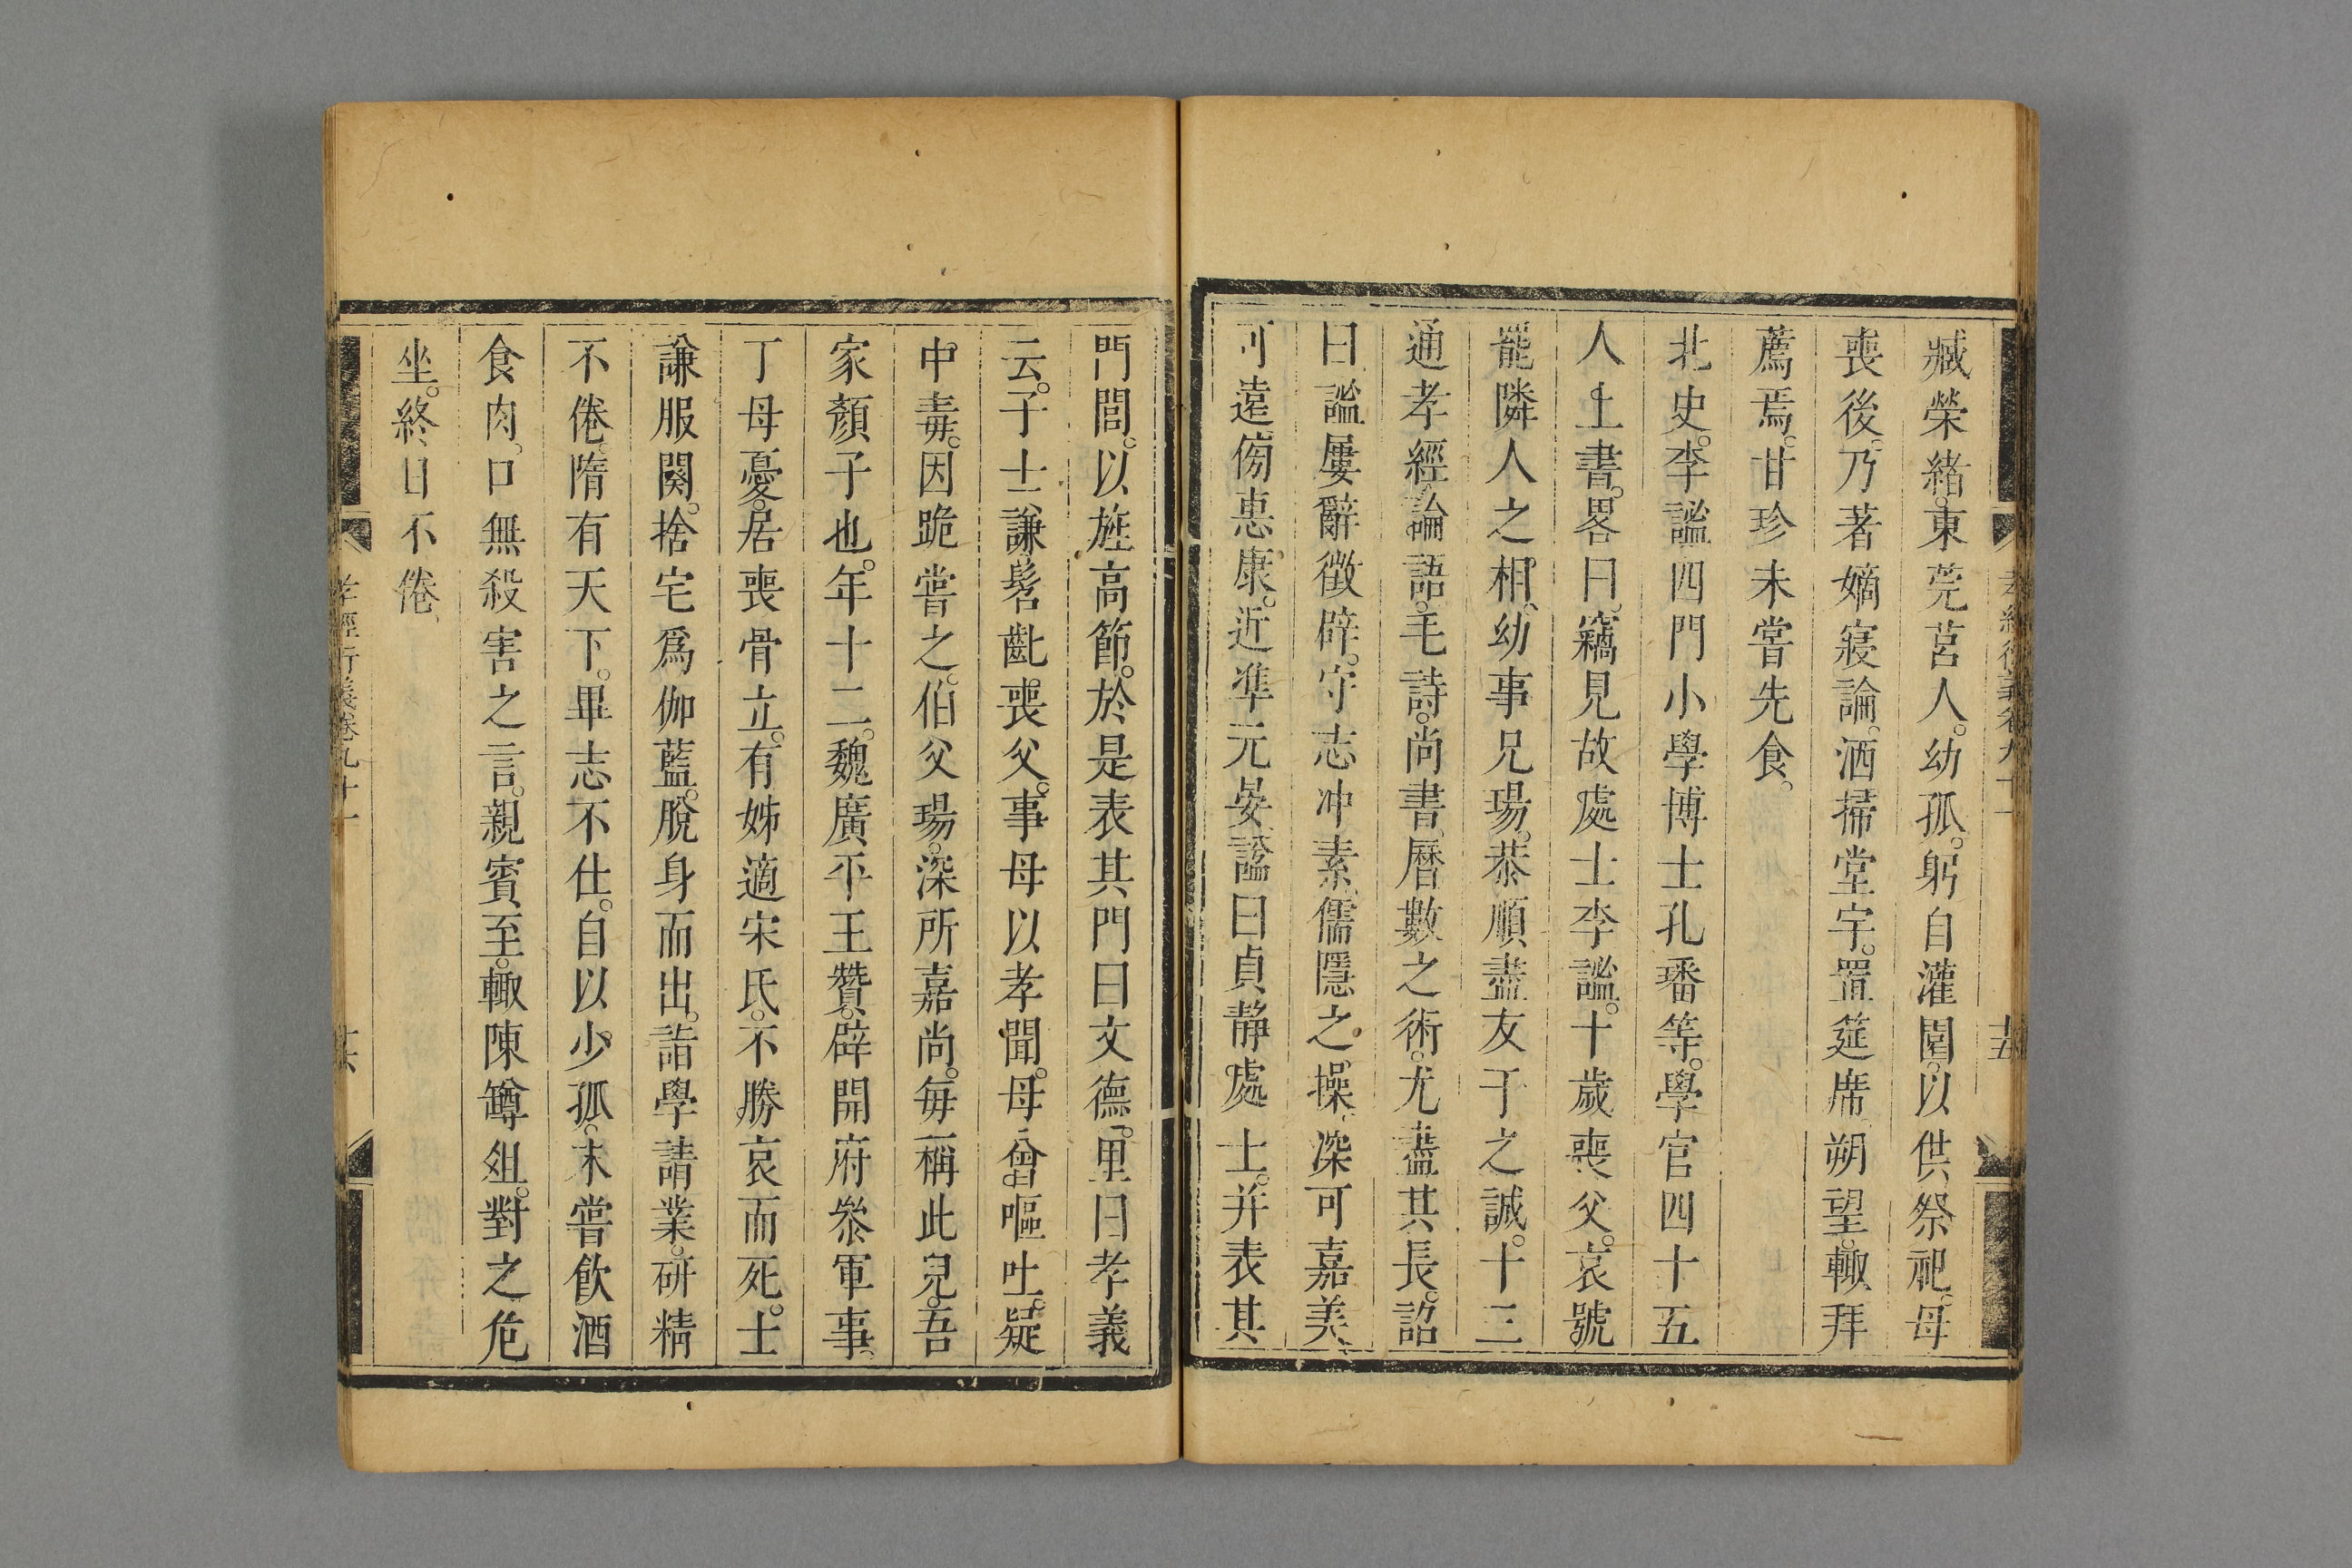 臧榮緒。東莞莒人。幼孤。躬自灌園。以供祭祀。母
喪後。乃著嫡寢論。洒掃堂宇。置筵席。朔望。輙拜
薦焉。甘珍未嘗先食。
北史。李謐四門小學博士孔璠等。學官四十五
人上書。畧曰。竊見故處士李謐。十歲喪父。哀號
罷隣人之相。幼事兄瑒。恭順盡友于之誠。十三
通孝經論語。毛詩。尚書。曆數之術。尤盡其長。詔
曰謐屢辭徵辟。守志冲素。儒隱之操。深可嘉美。
可遠傍惠康。近準元晏。謚曰貞靜處士。并表其
孝經衍義卷九十一
門閭。以旌高節。於是表其門曰文德。里曰孝義
云。子士謙。髫齔。喪父。事母以孝聞。母曾嘔吐。疑
中毒。因跪嘗之。伯父瑒。深所嘉尚。每稱此兒。吾
家顏子也。年十二。魏廣平王贊。辟開府叅軍事。
丁母憂。居喪骨立。有姊適宋氏。不勝哀而死。士
謙服闋。捨宅爲伽藍。脫身而出。詣學請業。硏精
不倦。隋有天下。畢志不仕。自以少孤。未嘗飲酒
食肉。口無殺害之言。親賓至。輙陳罇俎。對之危
坐。終日不倦。
孝經衍義卷九十一